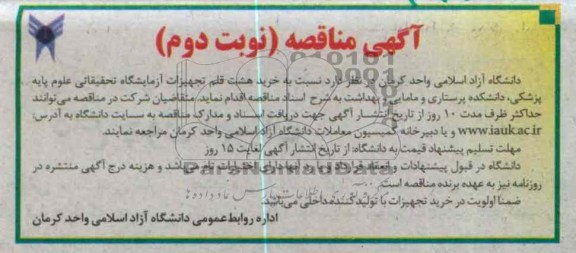 آگهی مناقصه (نوبت دوم)
دانشگاه آزاد اسلامی واحد کرمان در نظر دارد نسبت به خرید هشت قلم تجهیزات آزمایشگاه تحقیقاتی علوم پایه
پزشکی، دانشکده پرستاری و مامایی و بهداشت به شرح اسناد مناقصه اقدام نماید. متقاضیان شرکت در مناقصه می‌توانند
حداکثر ظرف مدت ۱۰ روز از تاریخ انتشار آگهی جهت دریافت اسناد و مدارک مناقصه به سایت دانشگاه به آدرس:
www.iauk.ac.ir و یا دبیرخانه کمیسیون معاملات دانشگاه آزاد اسلامی واحد کرمان مراجعه نمایند.
مهلت تسلیم پیشنهاد قیمت به دانشگاه: از تاریخ انتشار آگهی لغایت ۱۵ روز
دانشگاه در قبول پیشنهادات و انعقاد قرارداد و یا رد آنها دارای اختیارات تام می‌باشد و هزینه درج آگهی منتشره در
روزنامه نیز به عهده برنده مناقصه است.
ضمنا اولویت در خرید تجهیزات با تولید کننده داخلی می‌باشد.
اداره روابط عمومی دانشگاه آزاد اسلامی واحد کرمان
ParsNamadData